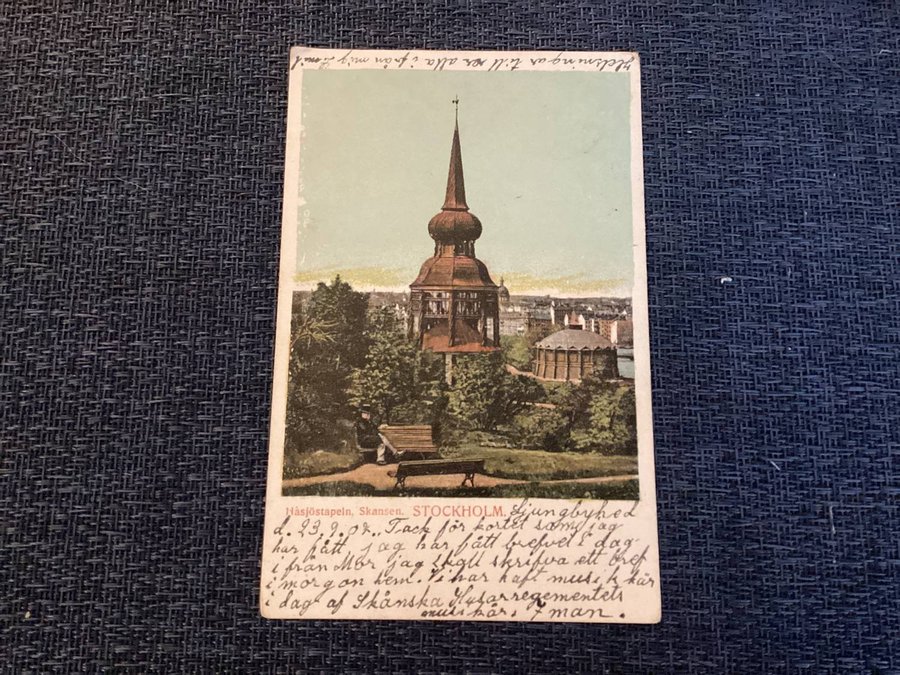 Helsningar till er alla i från mig Emil
Håsjöstapeln, Skansen. STOCKHOLM. Ljungbyhed
d. 23.9.07. Tack för kortet som jag
har fått, jag har fått brefvet i dag
i från Mor jag skall skrifva ett bref
i morgon hem. Vi har haft musik här
i dag af Skånska Husarregementets
musikkår. 7 man.